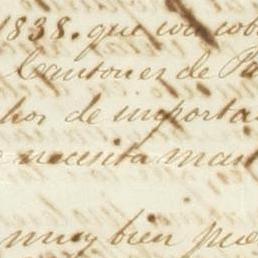 1838. que con
Cantones de Pa
hos de importa
necesita man
muy bien pue